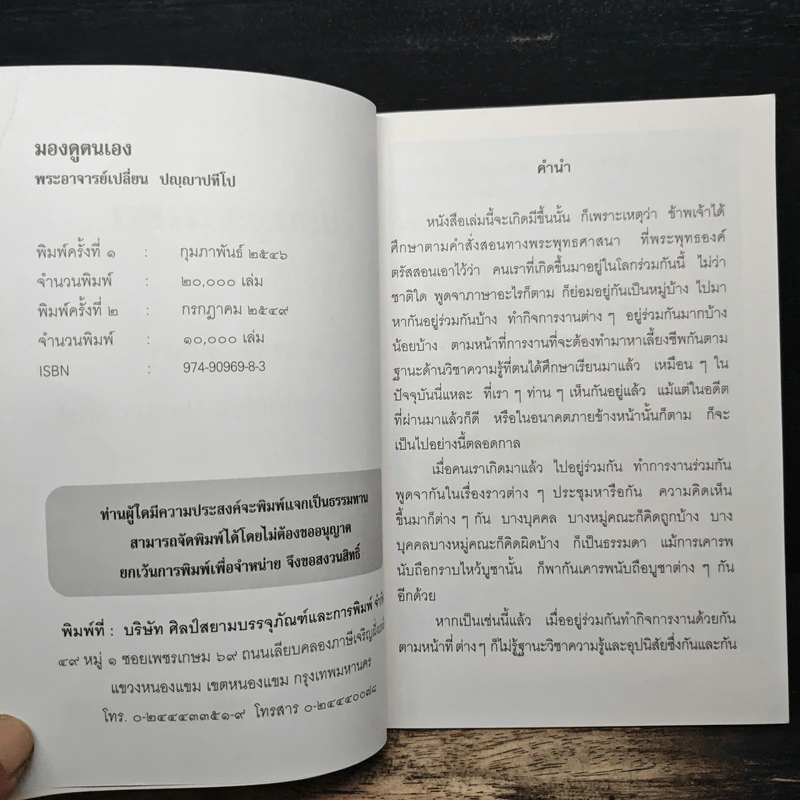 มองดูตนเอง
พระอาจารย์เปลี่ยน ปญฺญาปทีโป
พิมพ์ครั้งที่ ๑ : กุมภาพันธ์ ๒๕๔๖
จำนวนพิมพ์ : ๒๐,๐๐๐ เล่ม
พิมพ์ครั้งที่ ๒ : กรกฎาคม ๒๕๔๙
จำนวนพิมพ์ : ๑๐,๐๐๐ เล่ม
ISBN : 974-90969-8-3
ท่านผู้ใดมีความประสงค์จะพิมพ์แจกเป็นธรรมทาน
สามารถจัดพิมพ์ได้โดยไม่ต้องขออนุญาต
ยกเว้นการพิมพ์เพื่อจำหน่าย จึงขอสงวนสิทธิ์
พิมพ์ที่ : บริษัท ศิลป์สยามบรรจุภัณฑ์และการพิมพ์ จำกัด
๔๙ หมู่ ๑ ซอยเพชรเกษม ๖๙ ถนนเลียบคลองภาษีเจริญฝั่งเหนือ
แขวงหนองแขม เขตหนองแขม กรุงเทพมหานคร
โทร. ๐-๒๔๔๔๓๓๕๑-๙ โทรสาร ๐-๒๔๔๔๐๐๗๘
คำนำ
หนังสือเล่มนี้จะเกิดมีขึ้นนั้น ก็เพราะเหตุว่า ข้าพเจ้าได้
ศึกษาตามคำสั่งสอนทางพระพุทธศาสนา ที่พระพุทธองค์
ตรัสสอนเอาไว้ว่า คนเราที่เกิดขึ้นมาอยู่ในโลกร่วมกันนี้ ไม่ว่า
ชาติใด พูดจาภาษาอะไรก็ตาม ก็ย่อมอยู่กันเป็นหมู่บ้าง ไปมา
หากันอยู่ร่วมกันบ้าง ทำกิจการงานต่าง ๆ อยู่ร่วมกันมากบ้าง
น้อยบ้าง ตามหน้าที่การงานที่จะต้องทำมาหาเลี้ยงชีพกันตาม
ฐานะด้านวิชาความรู้ที่ตนได้ศึกษาเรียนมาแล้ว เหมือน ๆ ใน
ปัจจุบันนี่แหละ ที่เรา ๆ ท่าน ๆ เห็นกันอยู่แล้ว แม้แต่ในอดีต
ที่ผ่านมาแล้วก็ดี หรือในอนาคตภายข้างหน้านั้นก็ตาม ก็จะ
เป็นไปอย่างนี้ตลอดกาล
เมื่อคนเราเกิดมาแล้ว ไปอยู่ร่วมกัน ทำการงานร่วมกัน
พูดจากันในเรื่องราวต่าง ๆ ประชุมหารือกัน ความคิดเห็น
ขึ้นมาก็ต่าง ๆ กัน บางบุคคล บางหมู่คณะก็คิดถูกบ้าง บาง
บุคคลบางหมู่คณะก็คิดผิดบ้าง ก็เป็นธรรมดา แม้การเคารพ
นับถือกราบไหว้บูชานั้น ก็พากันเคารพนับถือบูชาต่าง ๆ กัน
อีกด้วย
หากเป็นเช่นนี้แล้ว เมื่ออยู่ร่วมกันทำกิจการงานด้วยกัน
ตามหน้าที่ ต่างๆ ก็ไม่รู้ฐานะวิชาความรู้และอุปนิสัยซึ่งกันและกัน